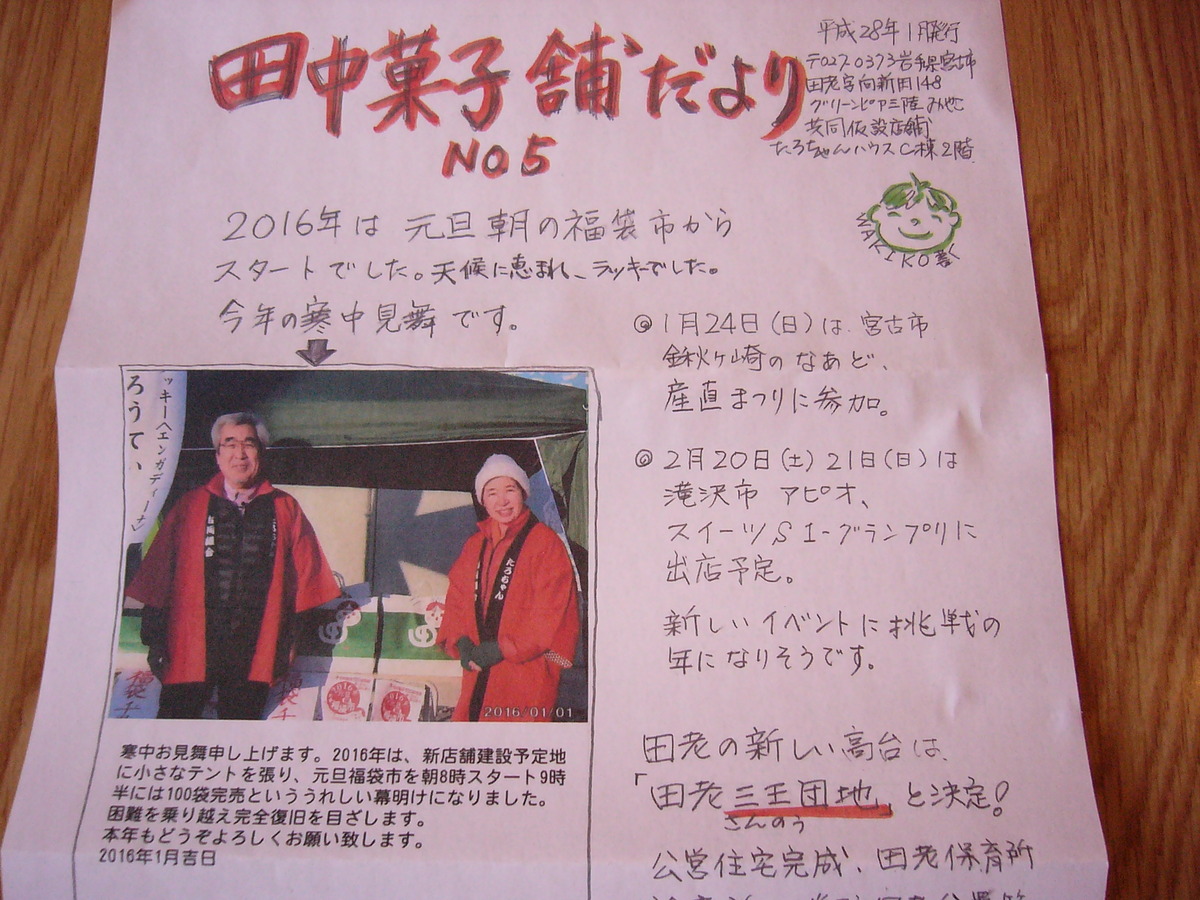 田中菓子舗だより
NO5
平成28年1月発行
〒027-0373岩手県宮古市
田老字向新田148
グリーンピア三陸みやこ
共同仮設店舗
たろちゃんハウスC棟2階
WAKIKO
2016年は 元旦朝の福袋市から
スタートでした。天候に恵まれ、ラッキーでした。
今年の寒中見舞です。
ろうてい
ッキーへエンガディーナ
たろちゃん
福袋
福袋
2016/01/01
寒中お見舞申し上げます。2016年は、新店舗建設予定地
に小さなテントを張り、元旦福袋市を朝8時スタート9時
半には100袋完売といううれしい幕明けになりました。
困難を乗り越え完全復旧を目ざします。
本年もどうぞよろしくお願い致します。
2016年1月吉日
◎1月24日(日)は、宮古市
鍬ヶ崎のなあど、
産直まつりに参加。
◎2月20日(土)21日(日)は
滝沢市 アピオ、
スイーツS1-グランプリに
出店予定。
新しいイベントに挑戦の
年になりそうです。
田老の新しい高台は、
「田老三王団地」と決定!
さんのう
公営住宅完成、田老保育所